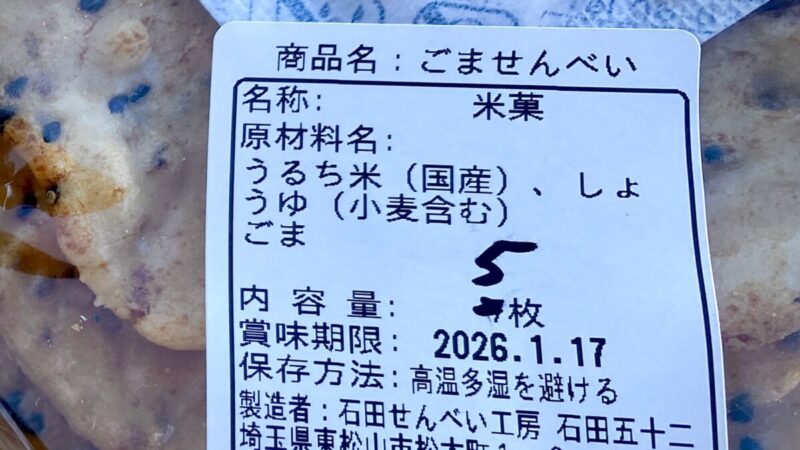 商品名：ごませんべい
名称: 米菓
原材料名:
うるち米（国産）、しょ
うゆ（小麦含む）
ごま
5
内容量: 枚
賞味期限: 2026.1.17
保存方法:高温多湿を避ける
製造者：石田せんべい工房 石田五十二
埼玉県東松山市松本町1